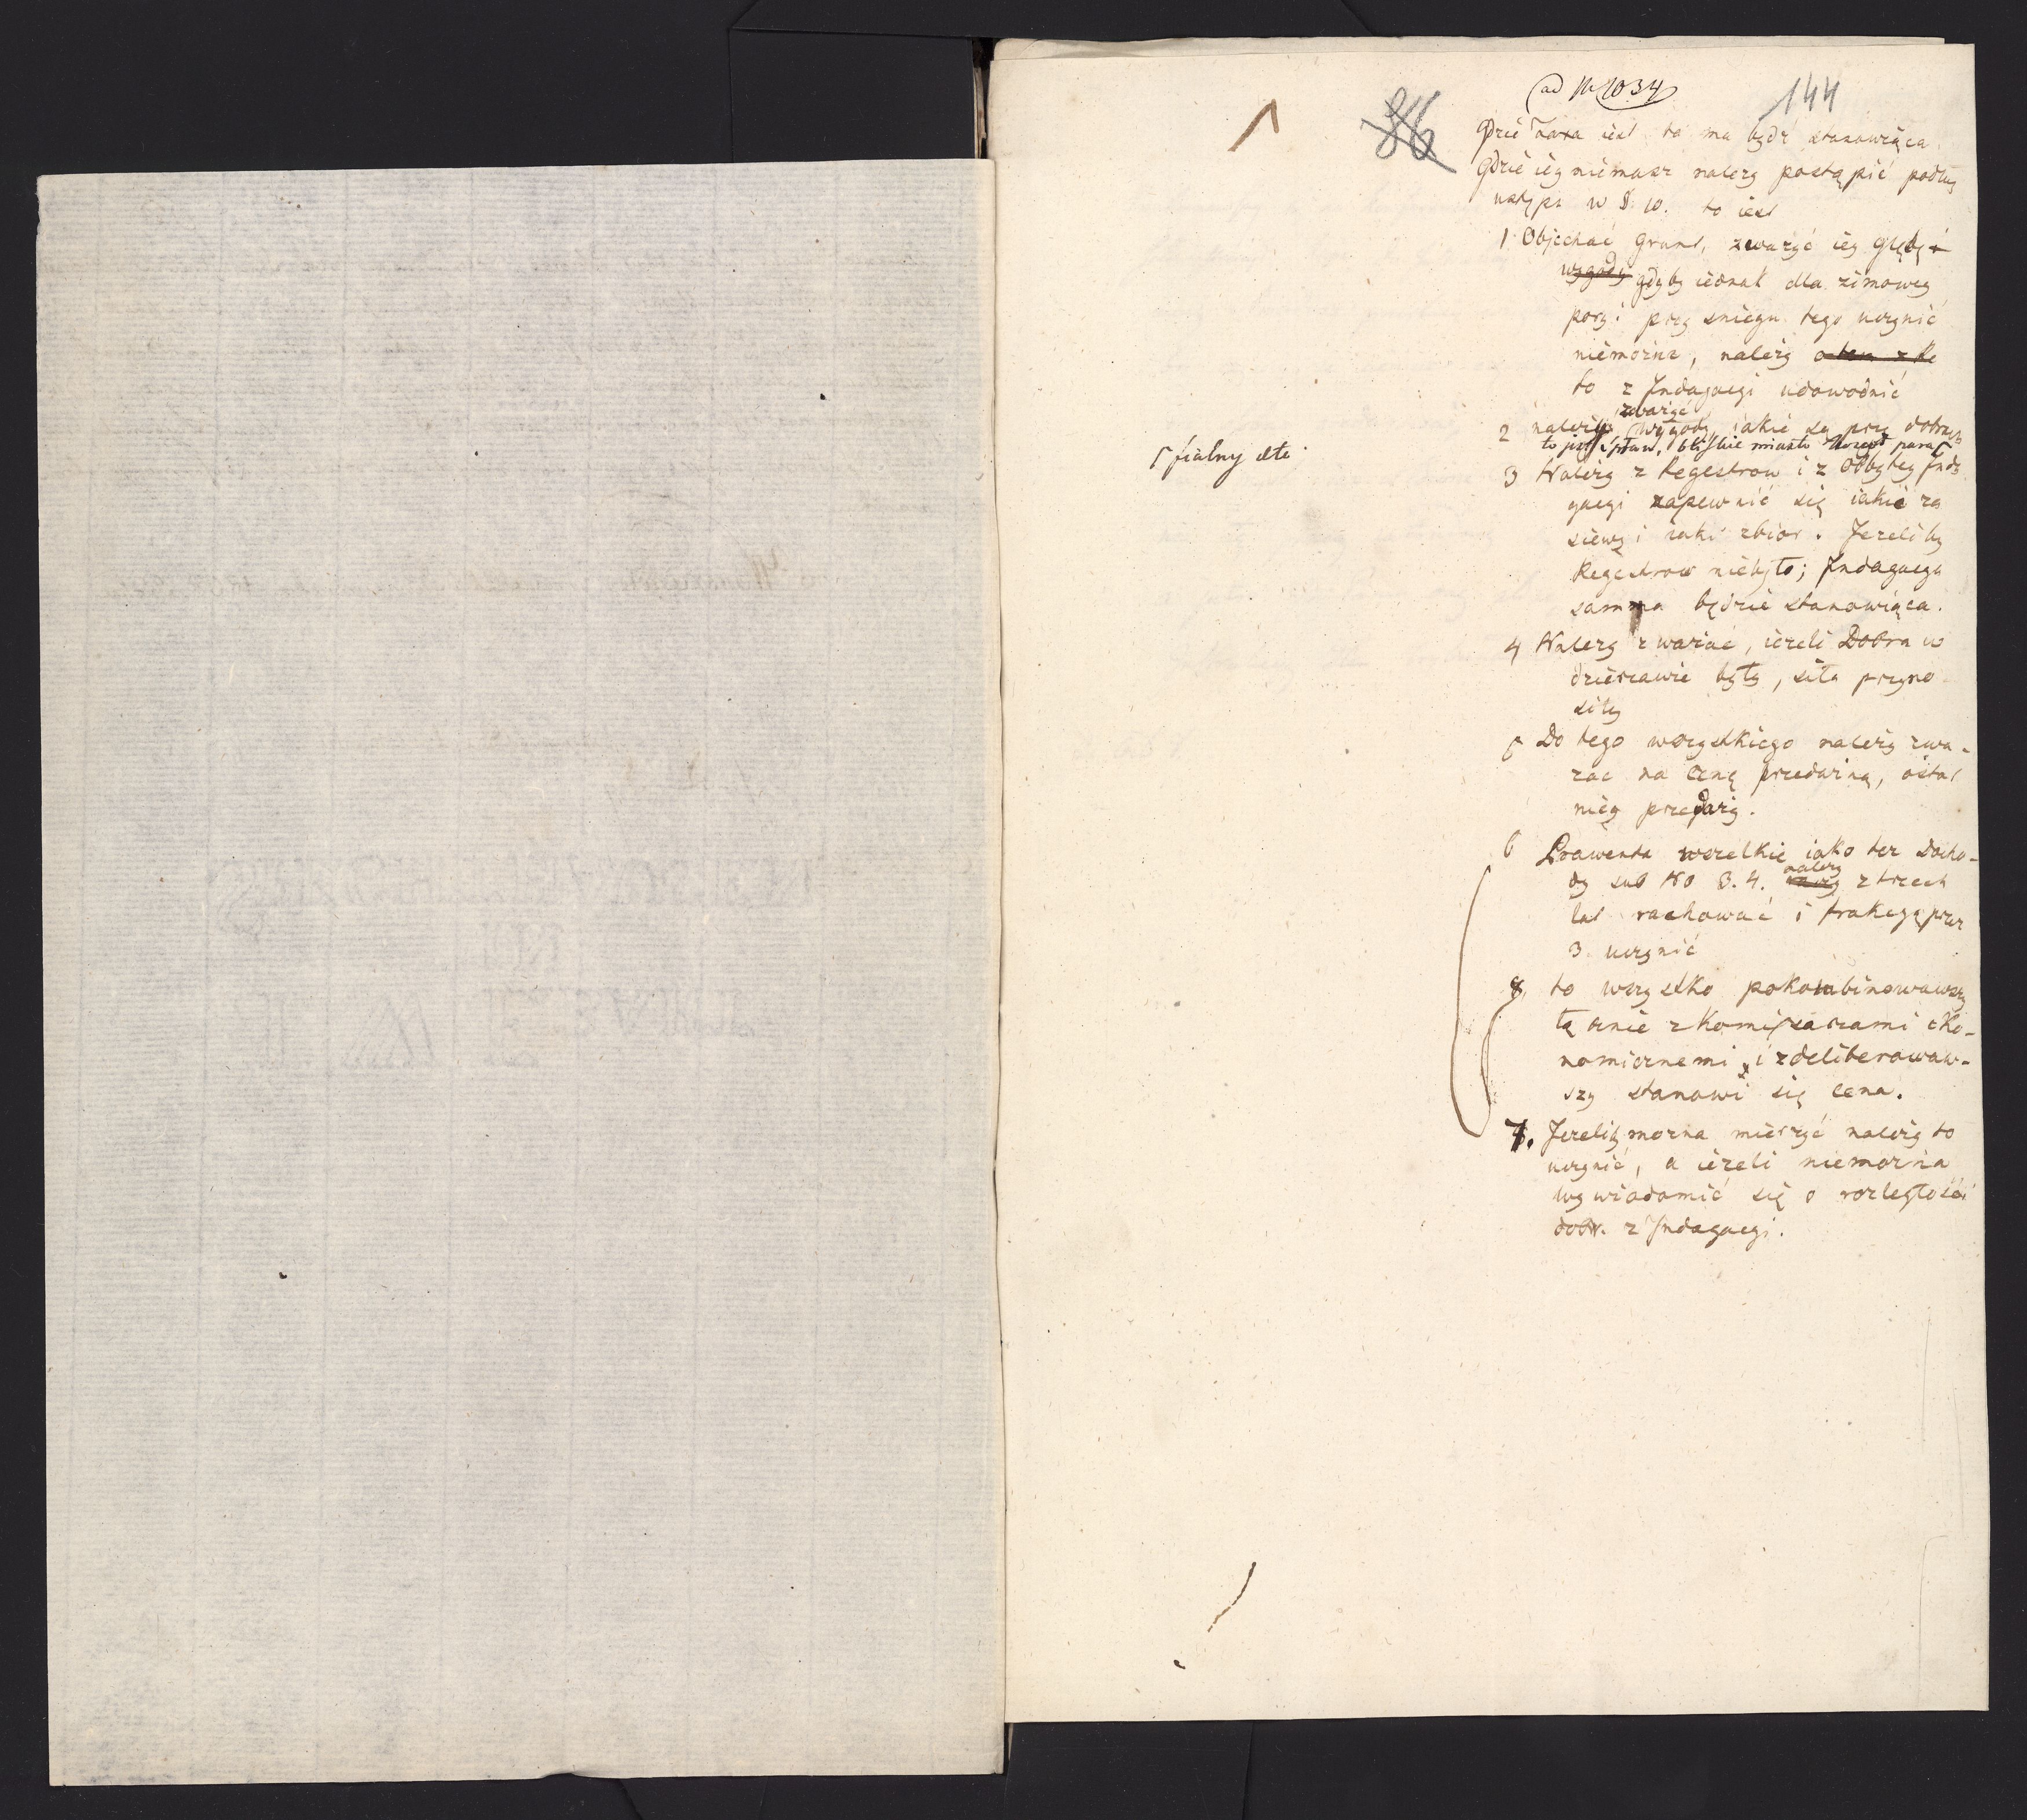 ad N 1034
144
86
Gdzie Taxa iest to ma bydź stanowiąca.
Gdzie iey niemasz należy postąpić podług
ustępu w §. 10. to iest
1 Objechać grunt, zważyć iey glębę i
wygody gdyby iednak dla zimowey
pory i przy sniegu tego uczynić
niemożna, należy
to z Indagacyi udowodnić
zważyć
2 należy wygody, iakie są przy dobrach
to jest spław, bliskie miasto Urząd paraf
fialny etc.
3 Należy z Regestrow i z Odbytey Inda
gacyi zapewnić się iakie za
siewy i iaki zbior. Jezeliby
Regestrow niebyło; Indagacya
samma będzie stanowiąca.
4 Należy zważać, ieżeli Dobra w
dzierżawie były, siła przyno
siły
5 Do tego wszystkiego należy zwa-
żac na cenę przedażną, ostat
niey przedaży.
6 Prawenta wszelkie iako też docho-
dy sub No 3. 4. należy z trzech
lat rachować i frakcyą przez
3 uczynić
8 to wszystko pokombinowawszy
łącznie z Komissarzami eko-
nomicznemi i zdeliberowaw-
szy stanowi się cena.
7. Jezeliby można mierzyć należy to
uczynić, a ieżeli niemożna
wywiadomić się o rozległości
dobr. z Indagacyi.